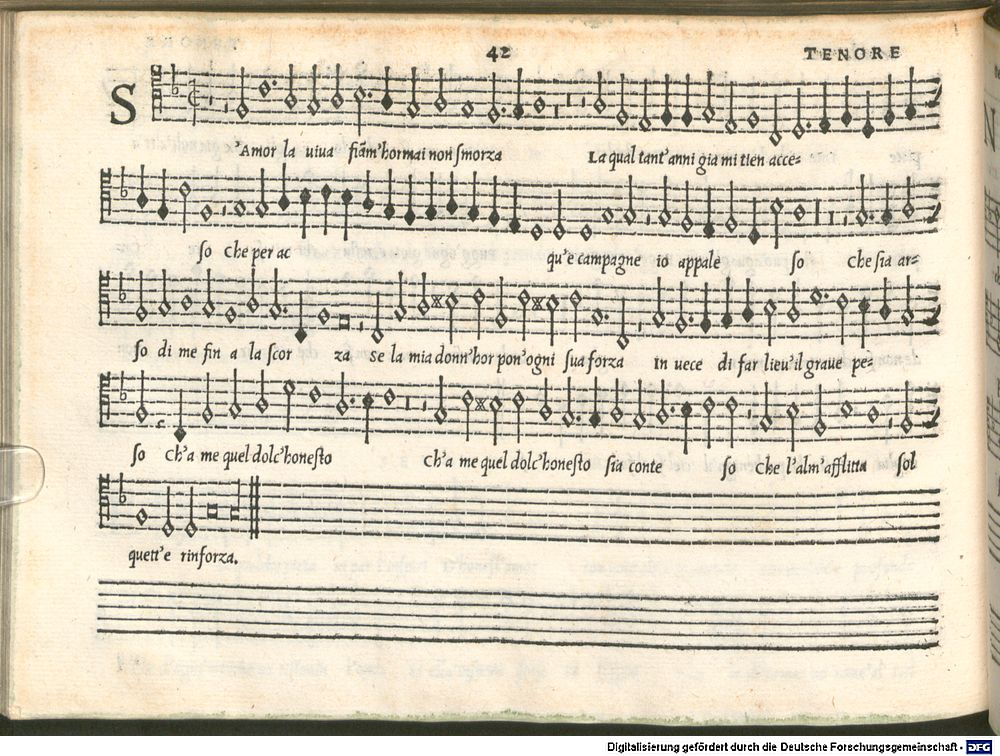 42 TENORE
S
'Amor la uiua fiãm'hormai non ſmorza La qual tant'anni gia mi tien acce-
ſo che per ac qu'e campagne io appale ſo che ſia ar-
ſo di me fin a la ſcor za se la mia donn'hor pon'ogni ſua forza In uece di far lieu'il graue pe-
ſo ch'a me quel dolc'honeſto ch'a me quel dolc'honeſto ſia conte ſo che l'alm'afflitta ſol
quett'e rinforza.
Digitalisierung gefördert durch die Deutsche Forschungsgemeinschaft - DFG